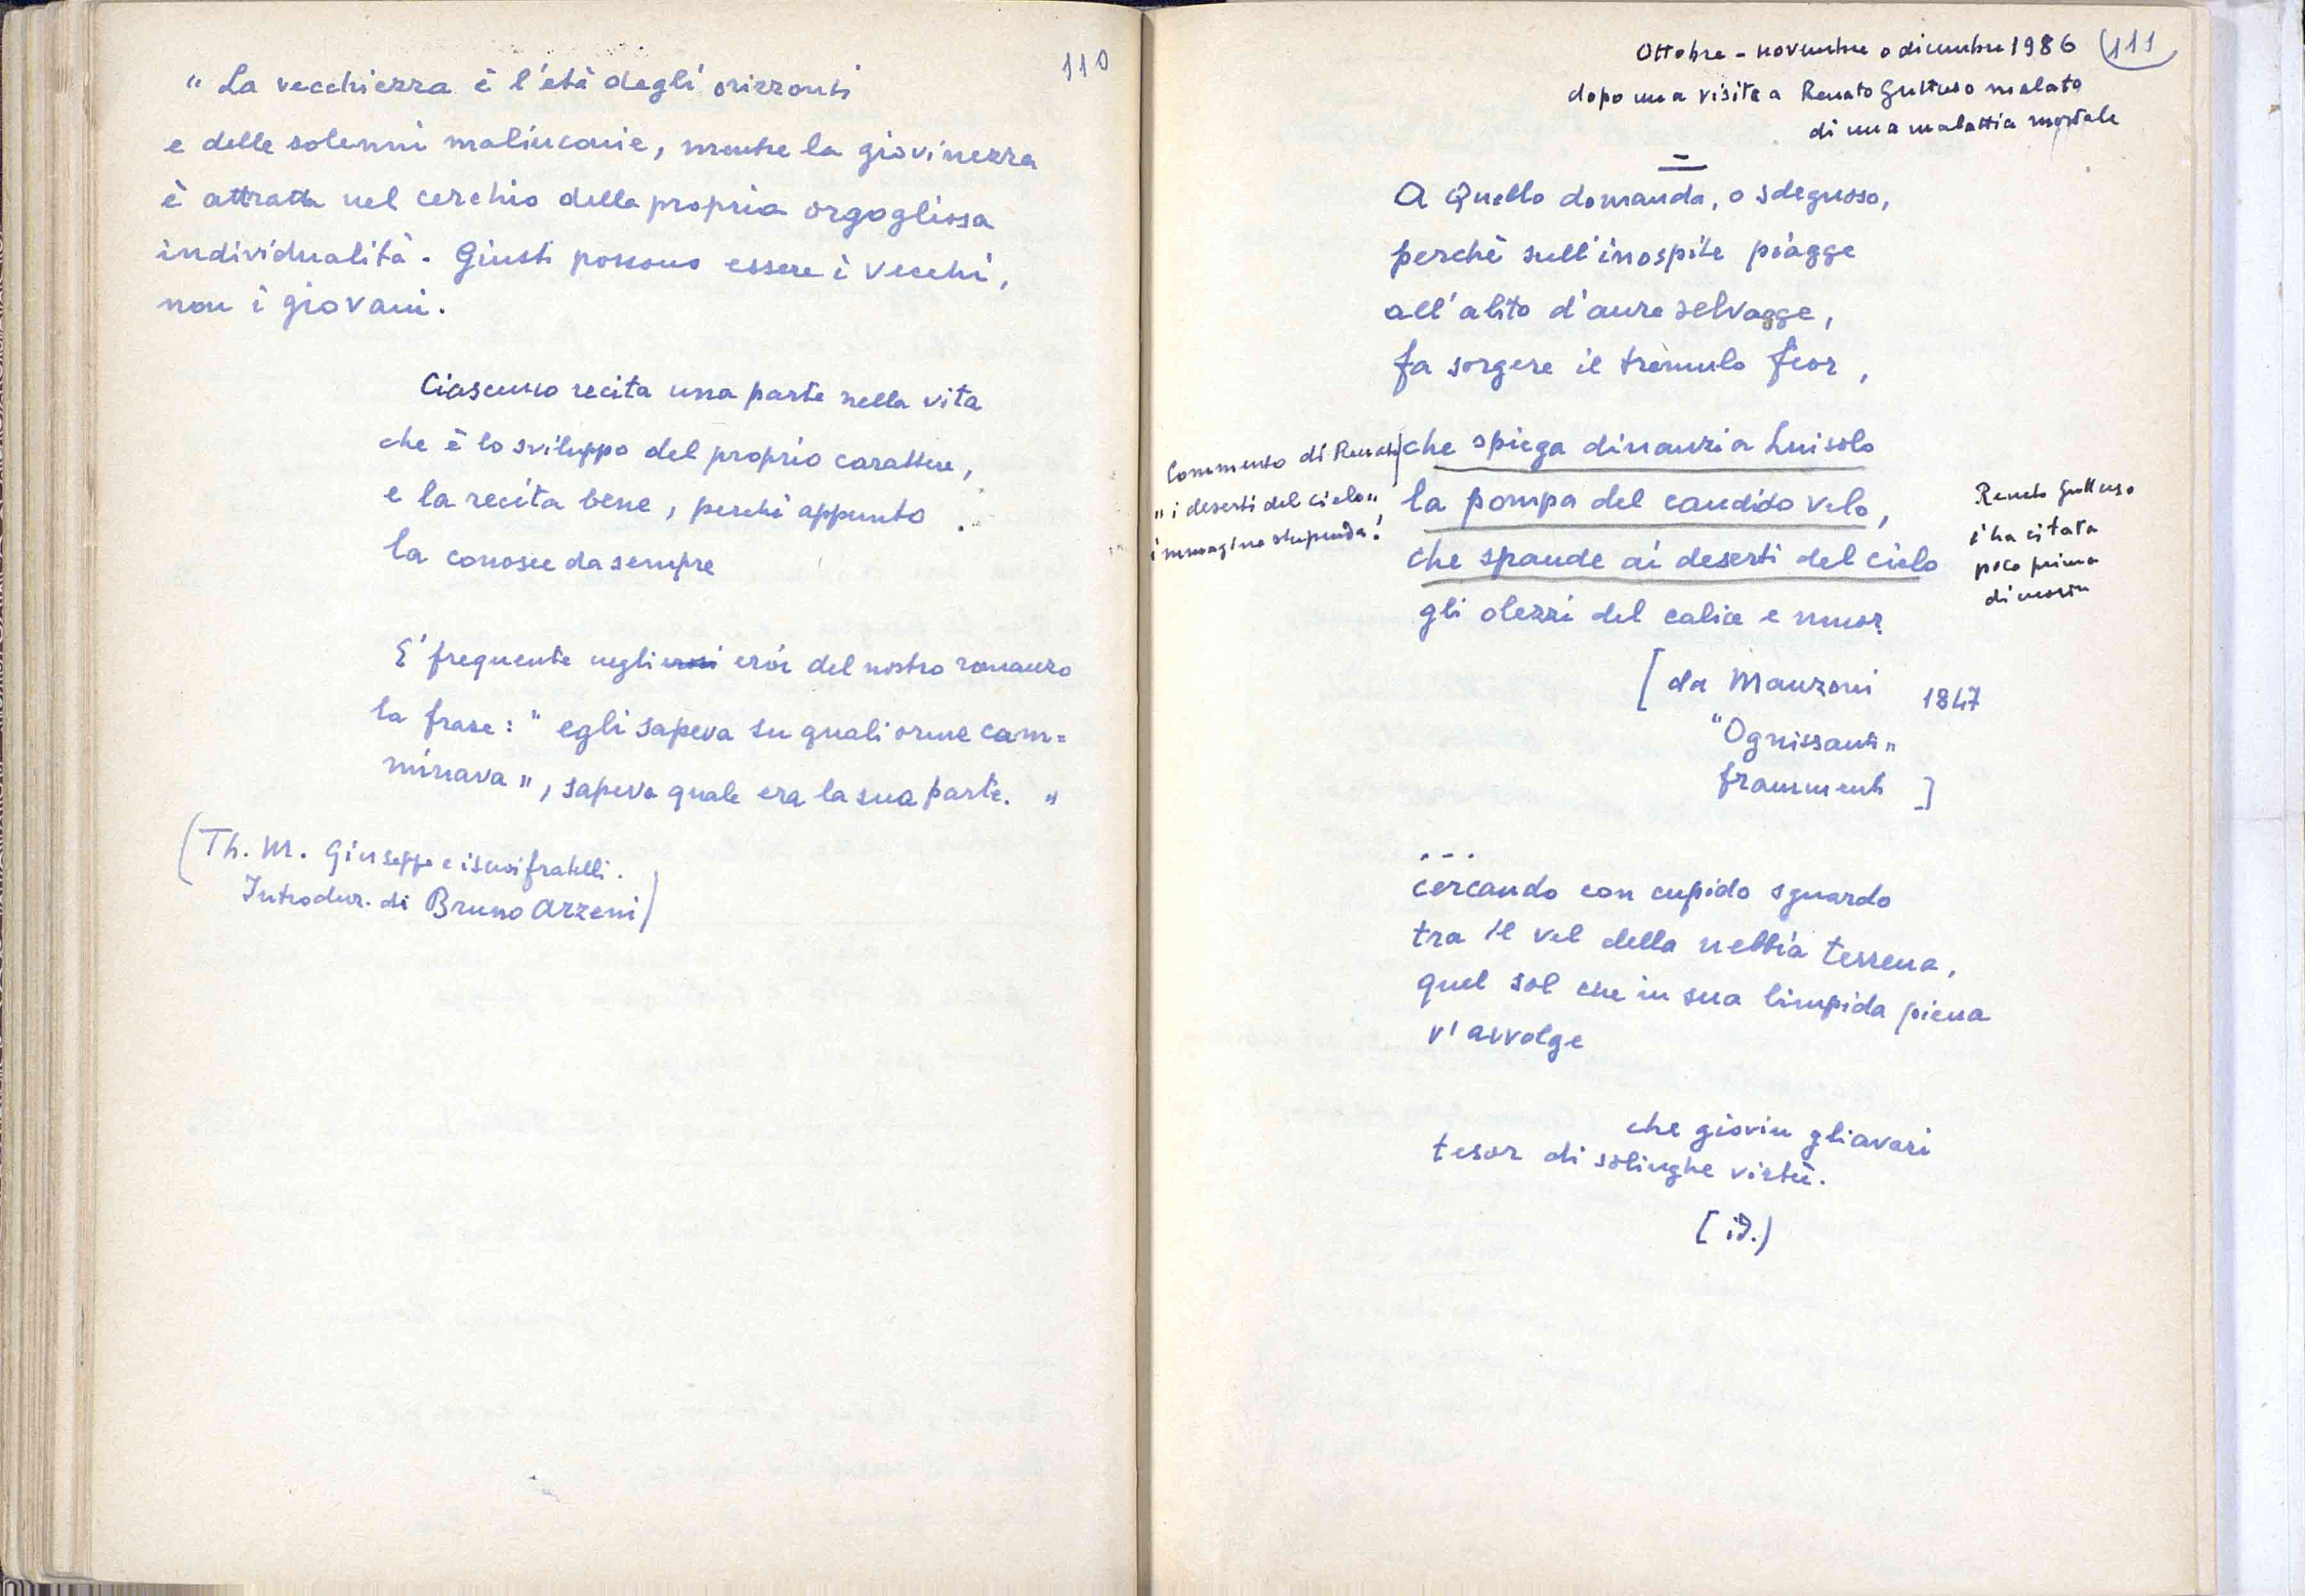 110
" La vecchiezza è l'età degli orizzonti
e delle solenni malinconie, mentre la giovinezza
è attratta nel cerchio della propria orgogliosa
individualità. Giusti possono essere i vecchi,
non i giovani.
Ciascuno recita una parte nella vita
che è lo sviluppo del proprio carattere,
e la recita bene, perché appunto
la conosce da sempre
E' frequente negli eroi del nostro romanzo
la frase: " egli sapeva su quali orme cam=
minava ", sapeva quale era la sua parte. "
(Th. M. Giuseppe e i suoi fratelli.
Introduz. di Bruno Arzeni)
Ottobre - novembre o dicembre 1986 (111
dopo una visita a Renato Guttuso malato
di una malattia mortale
=
A Quello domanda, o sdegnoso,
perchè sull'inospite piagge
all'alito d'aure selvagge,
fa sorgere il tremulo fior,
che spiega dinanzi a Lui solo
la pompa del candido velo,
che spande ai deserti del cielo
gli olezzi del calice e muor.
Commento di Renato
"i deserti del cielo",
immagine stupenda!
Renato Guttuso
l'ha citata
poco prima
di morire
[ da Manzoni 1847
"Ognissanti"
frammenti ]
...
cercando con cupido sguardo
tra il vel della nebbia terrena,
quel sol che in sua limpida piena
v'avvolge
che giovin gli avari
tesor di solinghe virtù.
[ id.)